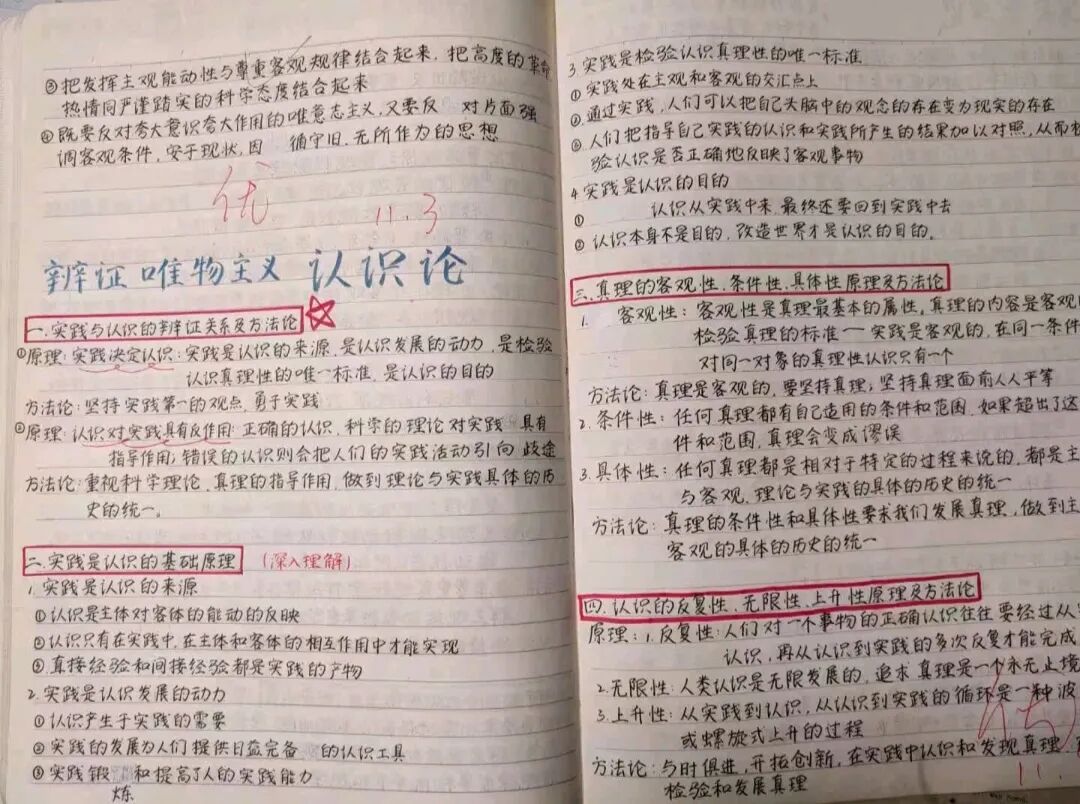 ③把发挥主观能动性与尊重客观规律结合起来，把高度的革命
热情同严谨踏实的科学态度结合起来
④既要反对夸大意识夸大作用的唯意志主义，又要反 对片面强
调客观条件，安于现状，因 循守旧，无所作为的思想
优 11.3
辩证唯物主义 认识论
一.实践与认识的辩证关系及方法论
①原理：实践决定认识：实践是认识的来源，是认识发展的动力，是检验
认识真理性的唯一标准，是认识的目的
方法论：坚持实践第一的观点，勇于实践
②原理：认识对实践具有反作用：正确的认识，科学的理论对实践 具有
指导作用；错误的认识则会把人们的实践活动引向 歧途
方法论：重视科学理论，真理的指导作用，做到理论与实践具体的历
史的统一。
二.实践是认识的基础原理 （深入理解）
1.实践是认识的来源
①认识是主体对客体的能动的反映
②认识只有在实践中，在主体和客体的相互作用中才能实现
③直接经验和间接经验都是实践的产物
2.实践是认识发展的动力
①认识产生于实践的需要
②实践的发展为人们提供日益完备 的认识工具
③实践锻 和提高了人的实践能力
炼
3.实践是检验认识真理性的唯一标准
①实践处在主观和客观的交汇点上
②通过实践，人们可以把自己头脑中的观念的存在变为现实的存在
③人们把指导自己实践的认识和实践所产生的结果加以对照，从而检
验认识是否正确地反映了客观事物
4.实践是认识的目的
① 认识从实践中来，最终还要回到实践中去
②认识本身不是目的，改造世界才是认识的目的。
三.真理的客观性、条件性、具体性原理及方法论
1. 客观性：客观性是真理最基本的属性，真理的内容是客观
检验真理的标准——实践是客观的，在同一条件
对同一对象的真理性认识只有一个
方法论：真理是客观的，要坚持真理；坚持真理面前人人平等
2.条件性：任何真理都有自己适用的条件和范围，如果超出了这
件和范围，真理会变成谬误
3.具体性：任何真理都是相对于特定的过程来说的，都是主
与客观，理论与实践的具体的历史的统一
方法论：真理的条件性和具体性要求我们发展真理，做到主
客观的具体的历史的统一
四.认识的反复性、无限性、上升性原理及方法论
原理：1.反复性：人们对一个事物的正确认识往往要经过从
认识，再从认识到实践的多次反复才能完成
2.无限性：人类认识是无限发展的，追求真理是一个永无止境
3.上升性：从实践到认识，从认识到实践的循环是一种波
或螺旋式上升的过程
方法论：与时俱进，开拓创新，在实践中认识和发现真理
检验和发展真理
11.